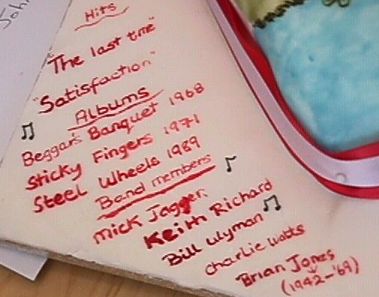 John
Hits
"The last time"
"Satisfaction"
Albums
Beggars Banquet 1968
Sticky Fingers 1971
Steel Wheels 1989
Band members
Mick Jagger
Keith Richard
Bill Wyman
Charlie Watts
Brian Jones
(1942-'69)